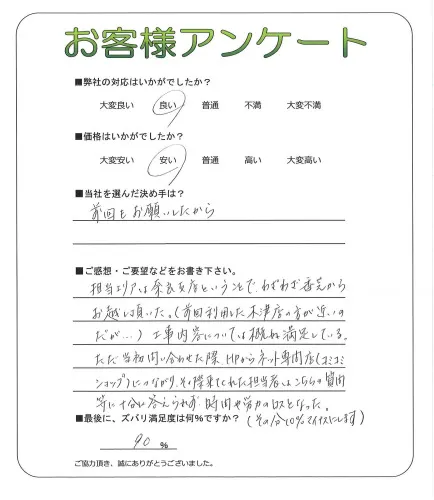 お客様アンケート
■弊社の対応はいかがでしたか？
大変良い 良い 普通 不満 大変不満
■価格はいかがでしたか？
大変安い 安い 普通 高い 大変高い
■当社を選んだ決め手は？
前回もお願いしたから
■ご感想・ご要望などをお書き下さい。
担当エリアは奈良支店ということで、わざわざ香芝から
お越し頂いた。（前回利用した木津店の方が近いの
だが…）工事内容については概ね満足している。
ただ、当初問い合わせた際、HPからネット専門店（コミコミ
ショップ）につながり、その際来てくれた担当者はこちらの質問
等に十分に答えられず、時間や労力のロスとなった。
■最後に、ズバリ満足度は何%ですか？（その分10%マイナスにします）
90 %
ご協力頂き、誠にありがとうございました。